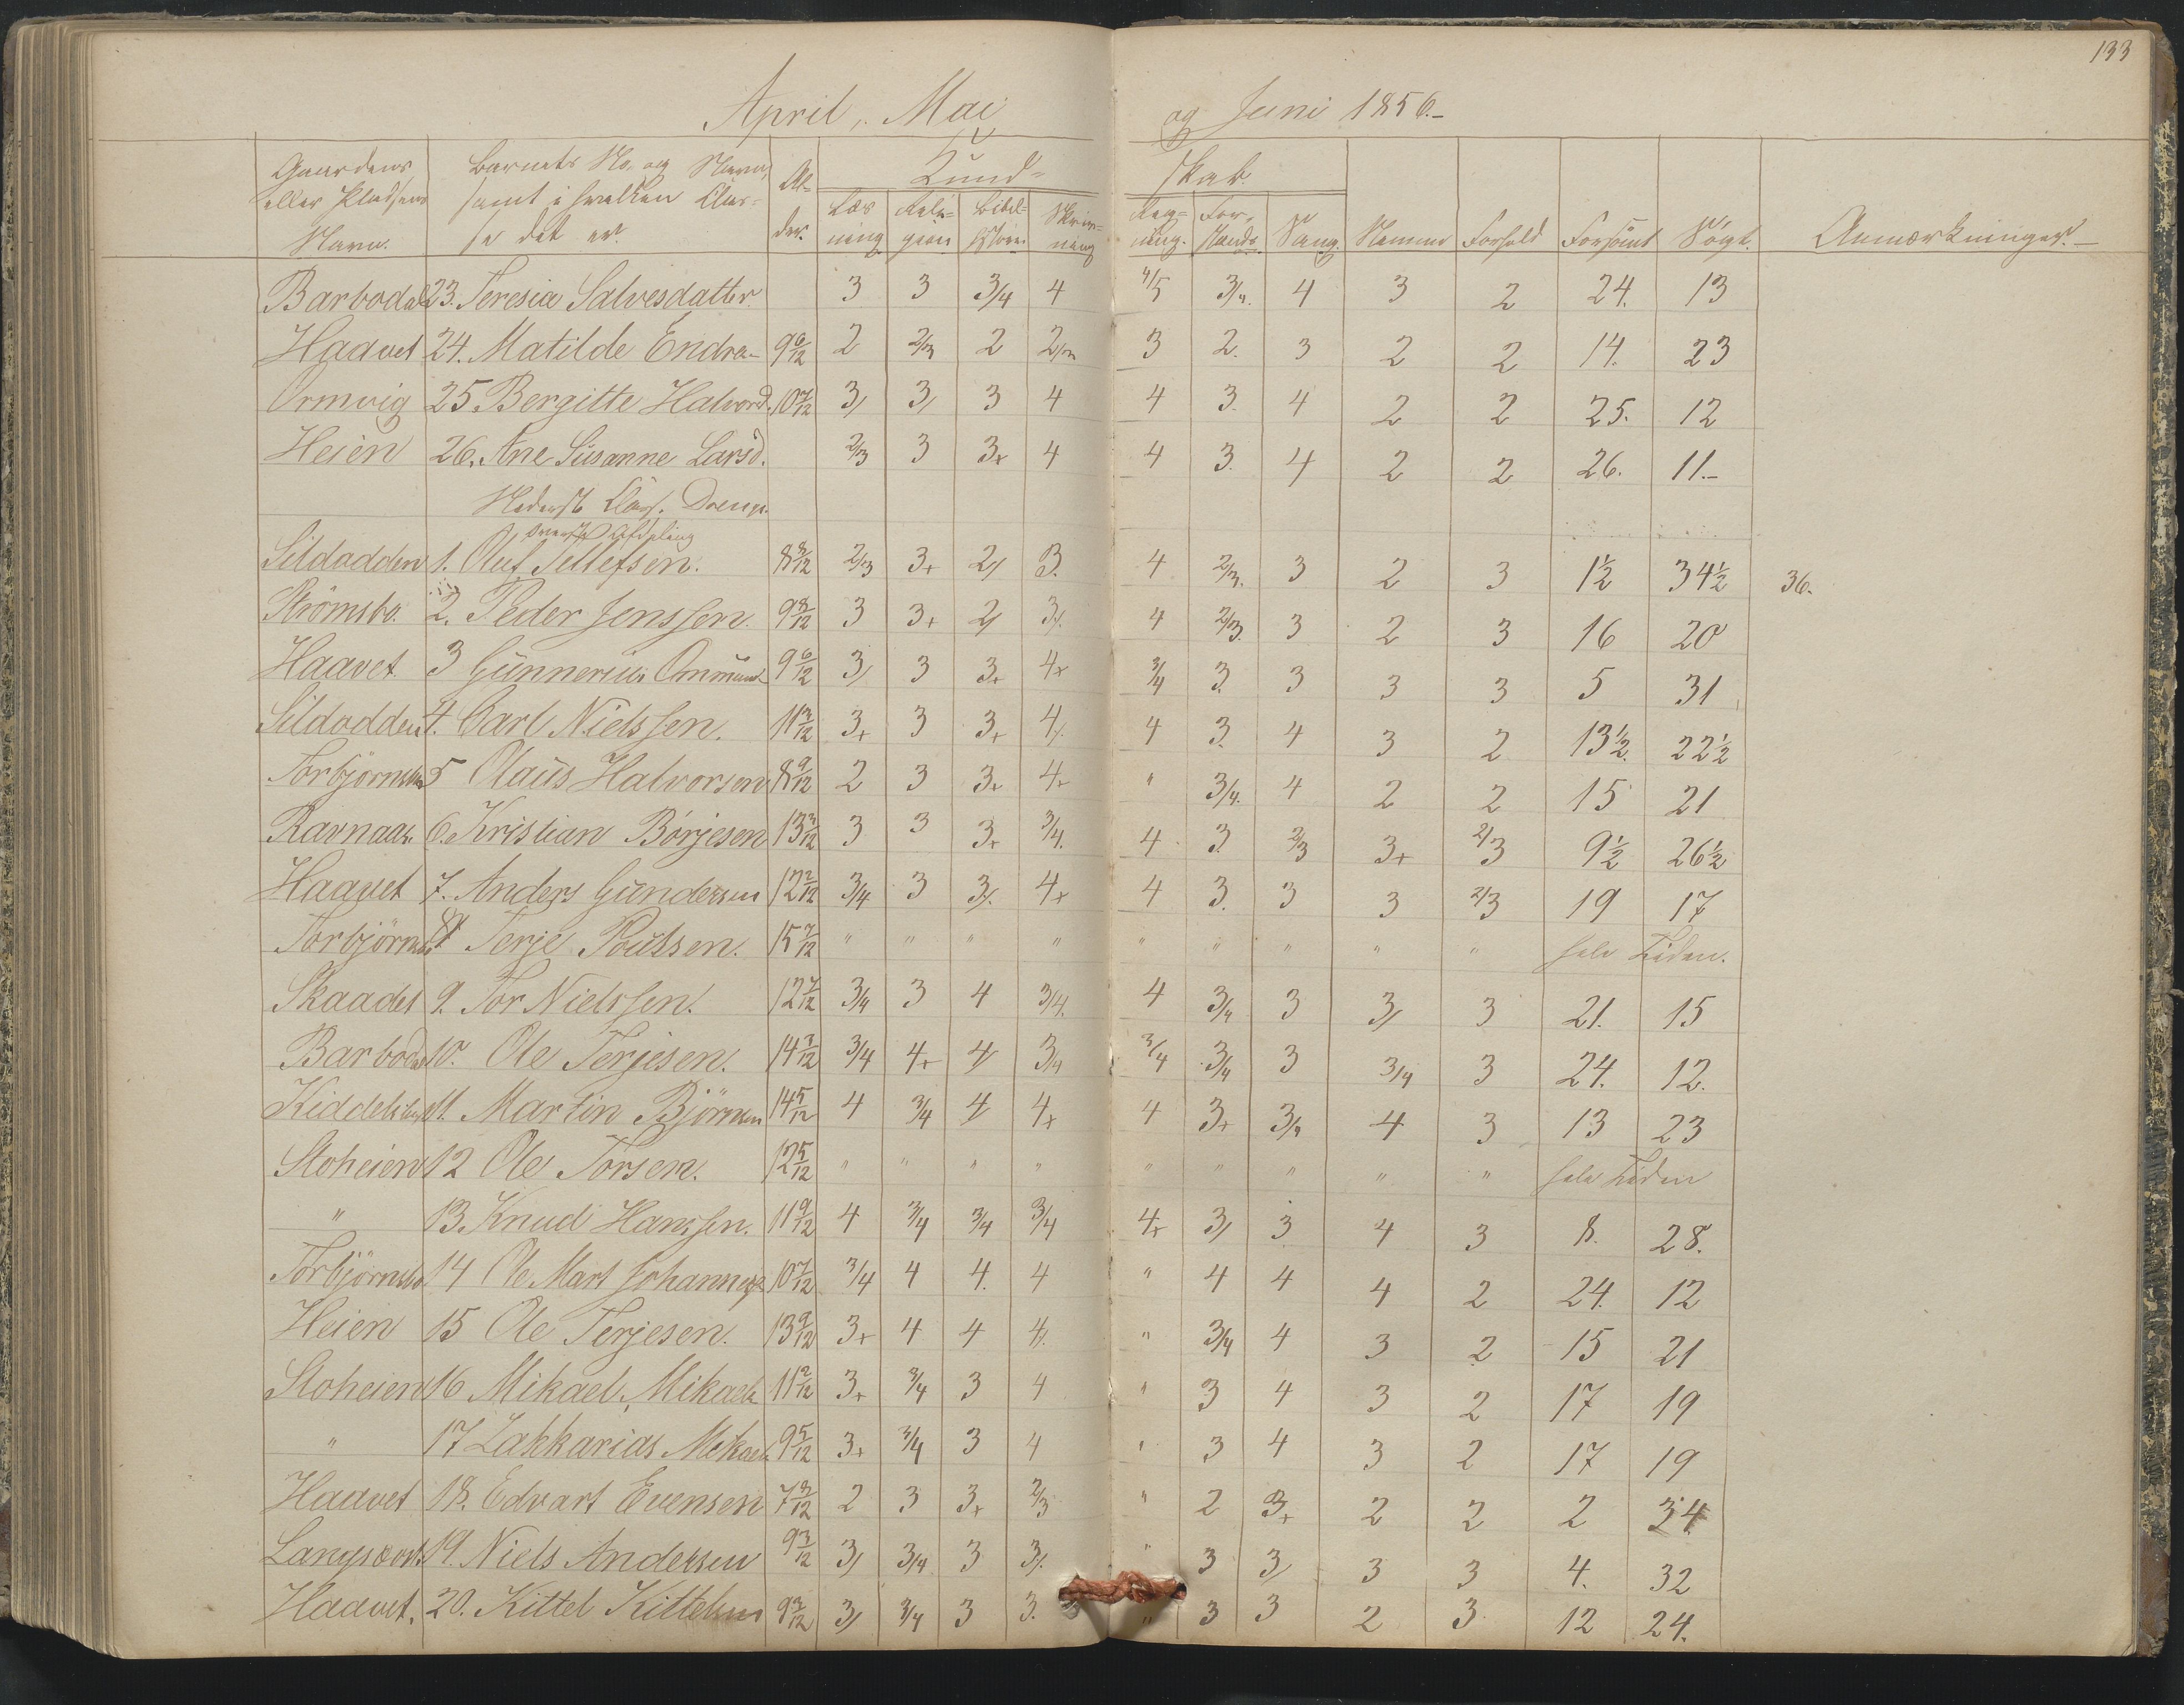 133
April, Mai og Juni 1856.-
Gaardens eller Pladsens Navn. | Barnets No. og Navn, samt i hvilken Clas- se det er. | Al- der. | Kund- skab. | Nemme | Forhold | Forsömt | Sögt. | Anmærkninger.-
Læs ning | Reli- gion | Bibel- historie | Skriv- ning | Reg- ning. | For- stands | Sang
Barbodal 23. Teresia Salvesdatter 3 3 3/4 4 4/5 3/4. 4 3 2 24. 13
Haavet 24. Matilde Endre- 9 6/12 2 2/3 2 2/3 3 2. 3 2 2 14. 23
Ormvig 25. Bergitte Halvord. 10 7/12 3/ 3/ 3 4 4 3. 4 2 2 25. 12
Heien 26. Ane Susanne Larsd. 2/3 3 3+ 4 4 3. 4 2 2 26. 11.-
Nederste Class. Drenge.
överste Afdeling
Sildodden 1. Oluf Tellefsen. 8 8/12 2/3 3+ 2/ 3. 4 2/3. 3 2 3 1½ 34½ 36.
Strömsbo. 2. Peder Jenssen. 9 8/12 3 3+ 2/ 3/. 4 2/3. 3 2 3 16 20
Haavet 3 Gunnerius Ommund 9 6/12 3/ 3 3+ 4+ 3/4 3. 3 3 3 5 31
Sildodden 4. Carl Nielssen. 11 3/12 3+ 3 3+ 4/. 4 3. 4 3 2 13½. 22½
Torbjörnsbo 5 Olaus Halvorsen 8 9/12 2 3 3+ 4+ " 3/4. 4 2 2 15 21
Ravnaas. 6. Kristian Börjesen 13 3/12 3 3 3+ 3/4. 4 3. 2/3 3+ 2/3 9½ 26½
Haavet 7. Anders Gundersen 12 2/12 3/4 3 3/. 4+ 4 3. 3 3 2/3 19 17
Torbjörnsbo 8 Terje Poulssen. 15 7/12 " " " " " " " " " hele Tiden.
Skaadel 9. Tor Nielssen. 12 7/12 3/4 3 4 3/4. 4 3/4 3 3/ 3 21. 15
Barbodal 10. Ole Terjesen. 14 3/12 3/4 4+ 4/ 3/4 3/4 3/4 3 3/4 3 24. 12.
11. Martin Björnsen 14 5/12 4 3/4 4/ 4+ 4 3+ 3/4 4 3 13 23
Stoheien 12 Ole Torsen. 12 5/12 " " " " " " " " " hele Tiden
" 13. Knud Hanssen. 11 9/12 4 3/4 3/4 3/4 4+ 3/ 3 4 3 8. 28.
Torbjörnsbo 14 Ole Mart Johannes 10 7/12 3/4 4 4. 4 " 4 4 4 2 24. 12
Heien 15 Ole Terjesen. 13 9/12 3+ 4 4 4/. " 3/4 4 3 2 15 21
Stoheien 16 Mikael Mikaels 11 2/12 3+ 3/4 3 4 " 3 4 3 2 17 19
" 17 Zakkarias Mekaels 9 5/12 3+ 3/4 3 4 " 3 4 3 2 17 19
Haavet 18. Edvart Evensen 7 3/12 2 3 3+ 2/3 " 2 3+ 2 2 2 34
19. Niels Andersen 9 3/12 3/ 3/4 3 3/. " 3 3/ 3 3 4. 32
Haavet. 20. Kittel Kittelsen 9 3/12 3/ 3/4 3 3. " 3 3 2 3 12 24.